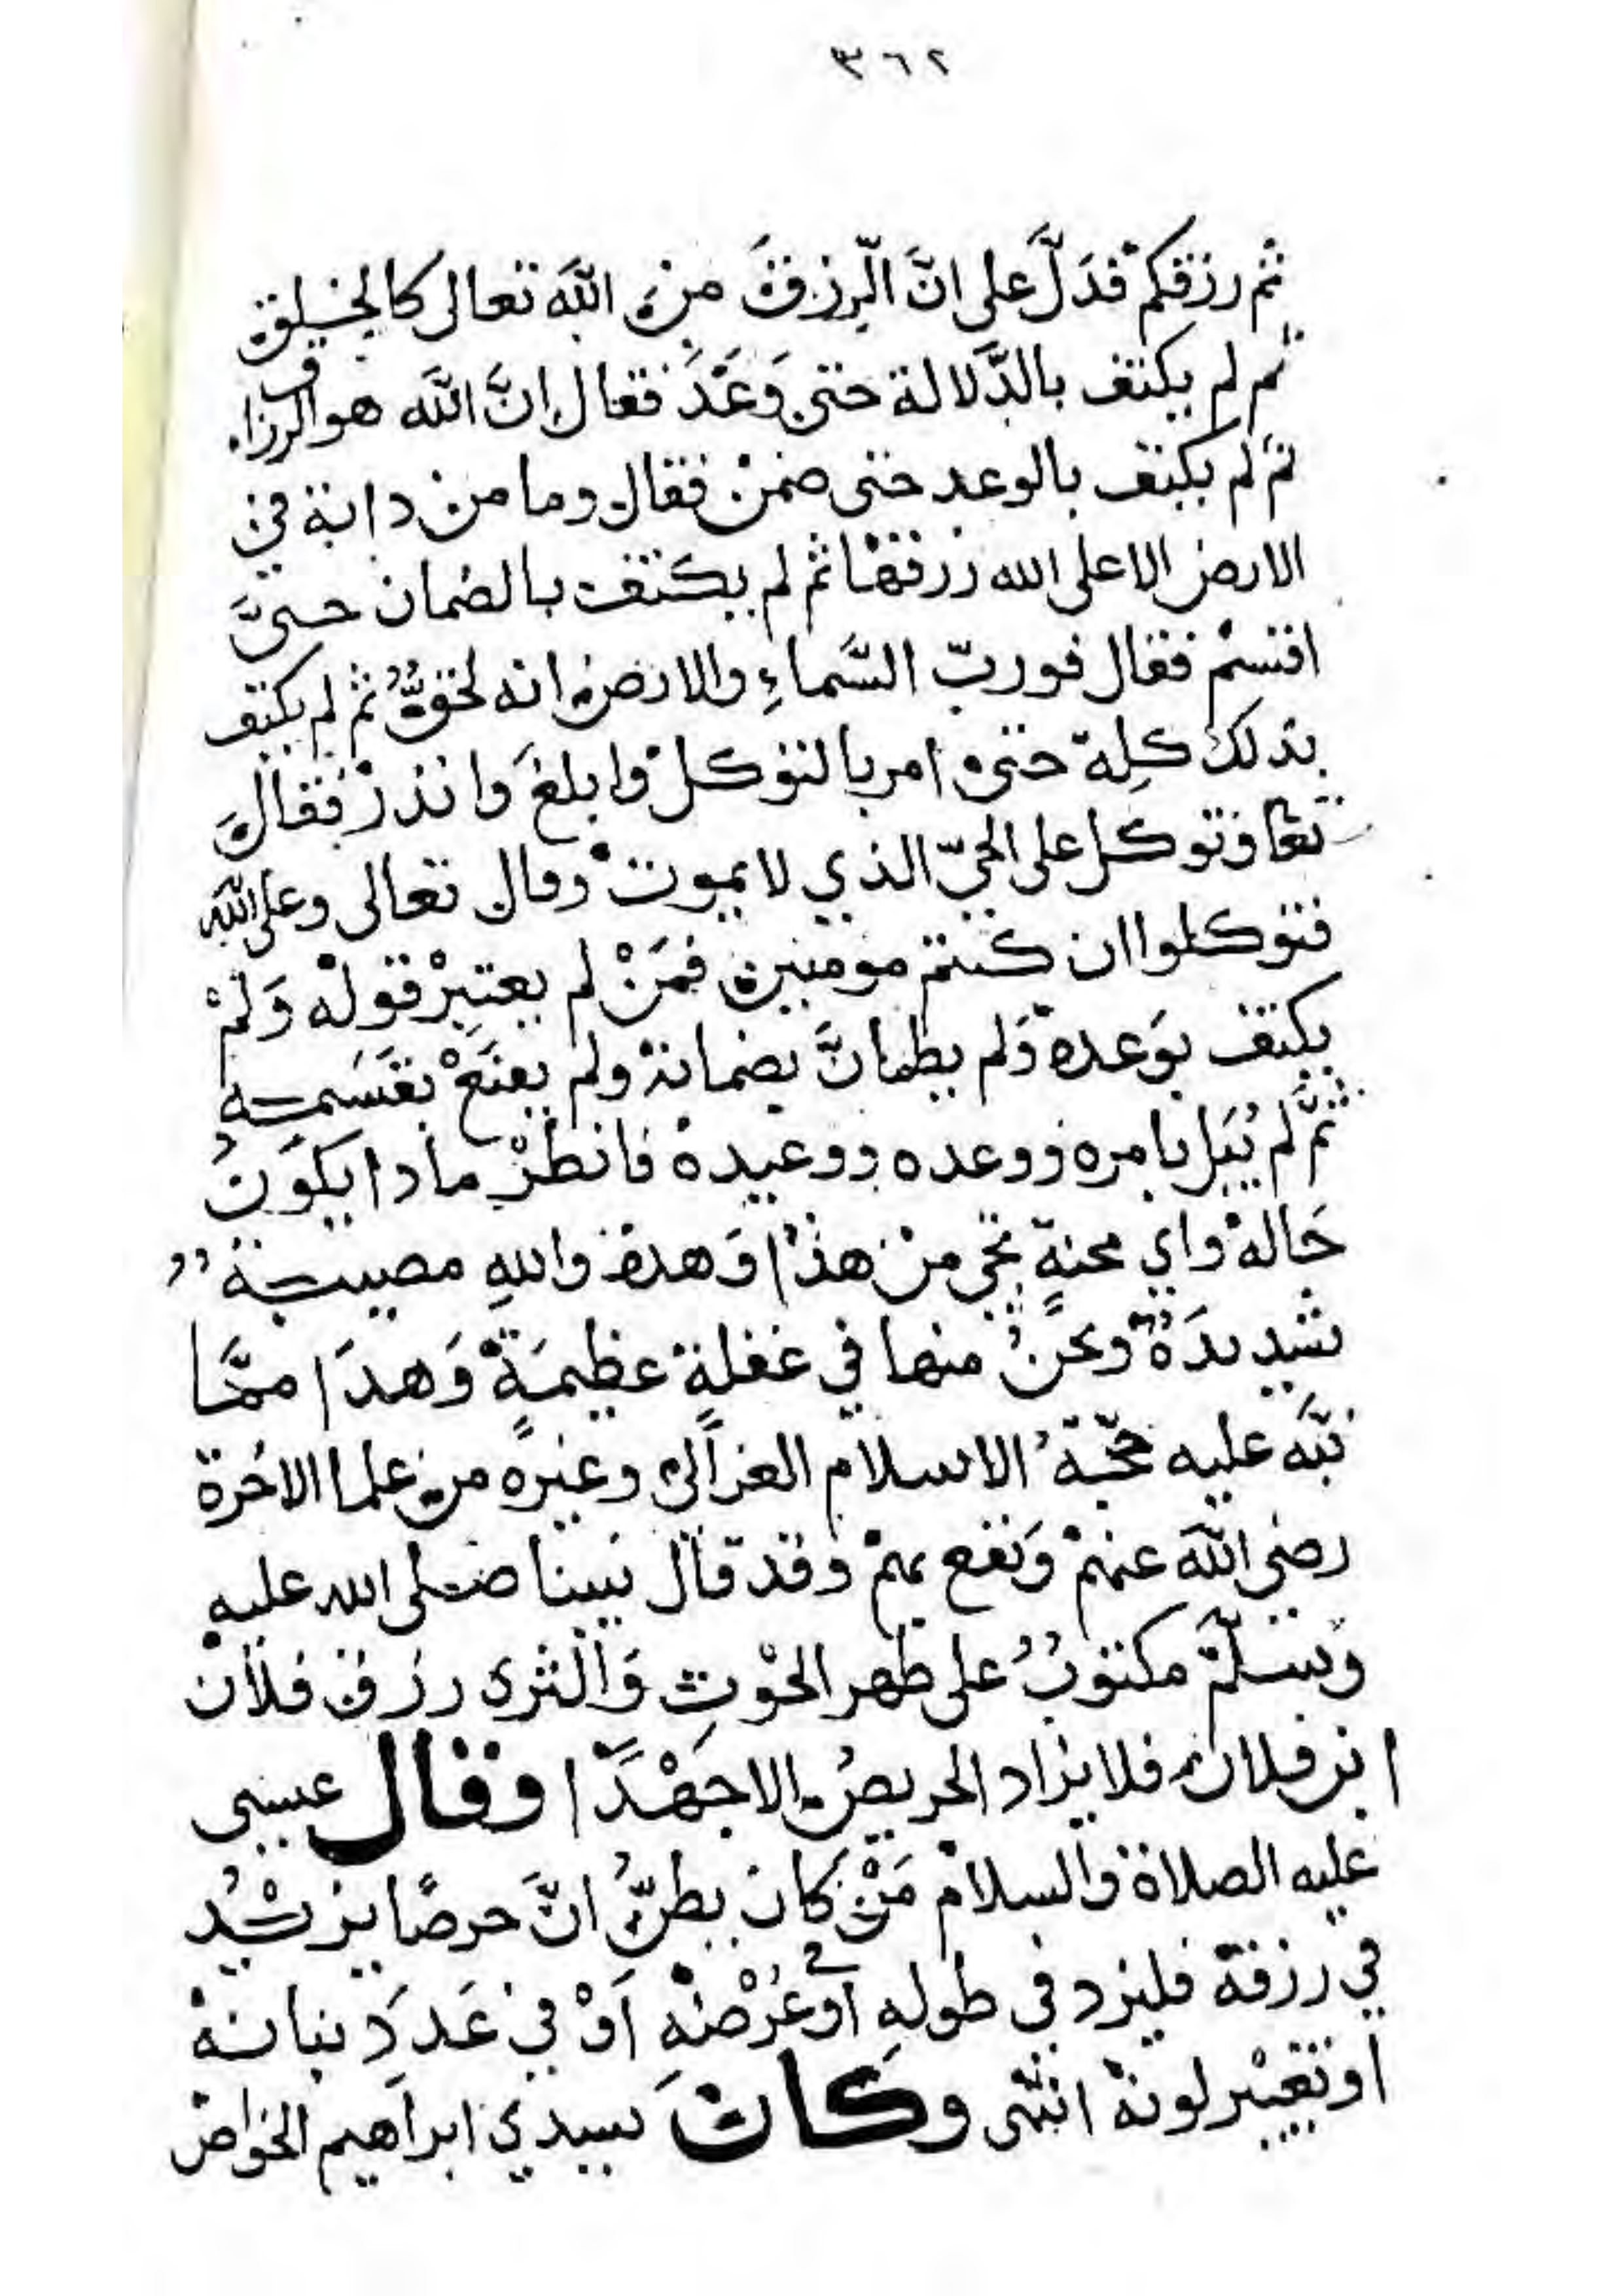 ٣٦٢
ثم رزقكم فدَلَّ على انَّ الّرِزقَ من اللّه تعالى كالخلق
ثم لم يكتف بالدَّلالة حتى وَعَدَ فقال انَّ اللّه هو الرزاق
ثم لم يكتف بالوعد حتى ضمنْ فقال وما من دابة في
الارض الا على الله رزقها ثم لم يكتف بالضمان حتىَّ
اقسمْ فقال فوربّ السَّماءِ والارض انه لحقٌّ ثم لم يكتف
بذلك كلِه حتى امر بالتوكلْ وابلغَ وانذرْ فقالَ
تعا وتوكل على الحيّ الذي لا يموتْ وقال تعالى وعلى اللّه
فتوكلوا ان كنتم مومنين فمَنْ لم يعتبِرْ قولهْ وَلمْ
يكتف بوَعده وَلم يطمانَّ بضمانهْ ولم يقنَعْ بقَسَمهِ
ثمَّ لم يُبَل بامره ووعده ووعيدهْ فانظرْ ماذا يكوَنُ
حَالهْ واي محنةٍ تجي منْ هذا وَهذهْ واللهِ مصيبة
شديدَةٌ ونحنُ منها في غفلةٍ عظيمَةٍ وَهذَا ممَّا
نبَّه عليه حجّة الاسلام الغزالي وغيره من علما الاخرة
رضي اللّه عنهمْ وَنفع بهمْ وقد قال نبينا صلى الله عليه
وَسلّمْ مكتوبٌ على ظهر الحوْتِ وَالثرى رزق فلان
ابن فلان فلا يزاد الحريصُ الا جَهْدًا وقال عيسى
عليه الصلاة والسلام مَنْ كان يظنُّ انَّ حرصًا يزيْدُ
في رزقهْ فليزد في طولهِ أوْ عَرْضهِ اَوْ في عَدَدَ بنانهْ
او تغيْير لونهْ انتهى وكان سيدي ابراهيم الخواص